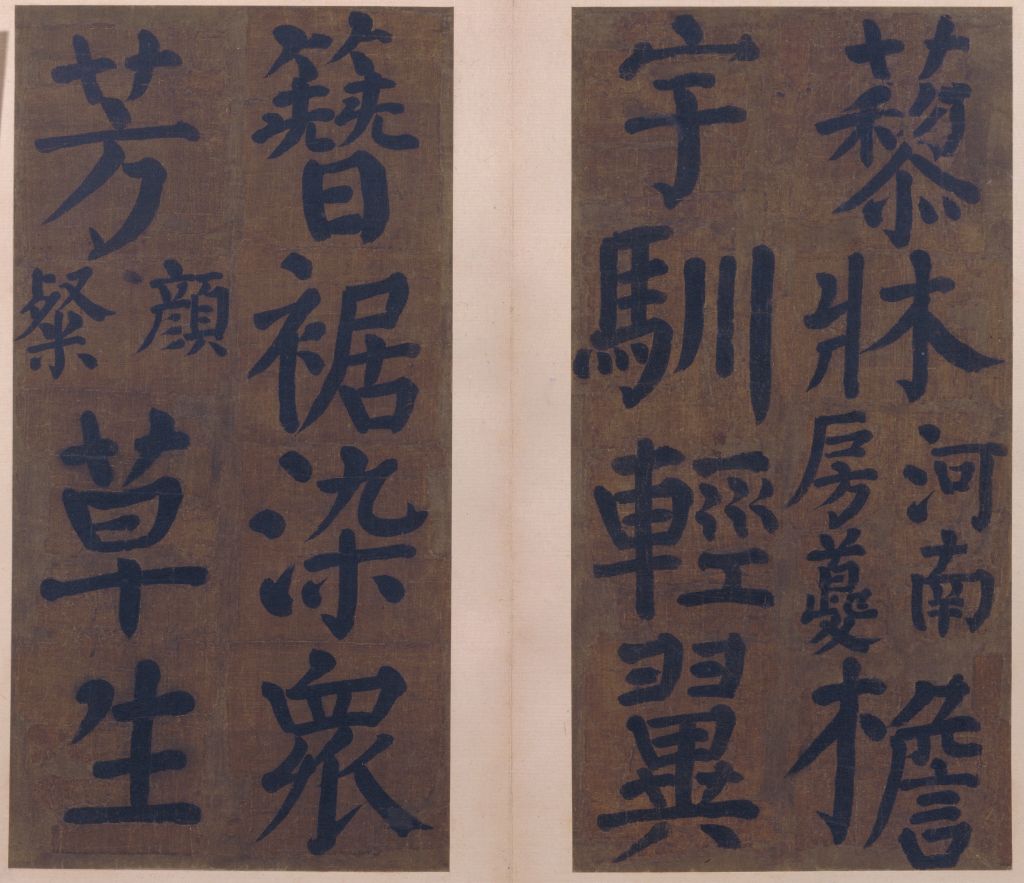 藜牀
河南
房夔
檐
宇馴輕翼
簪裾染衆
芳
顏
粲
草生